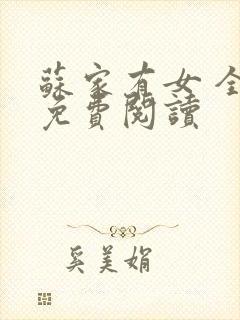 蘇家有女全
免費閱讀
奚美娟